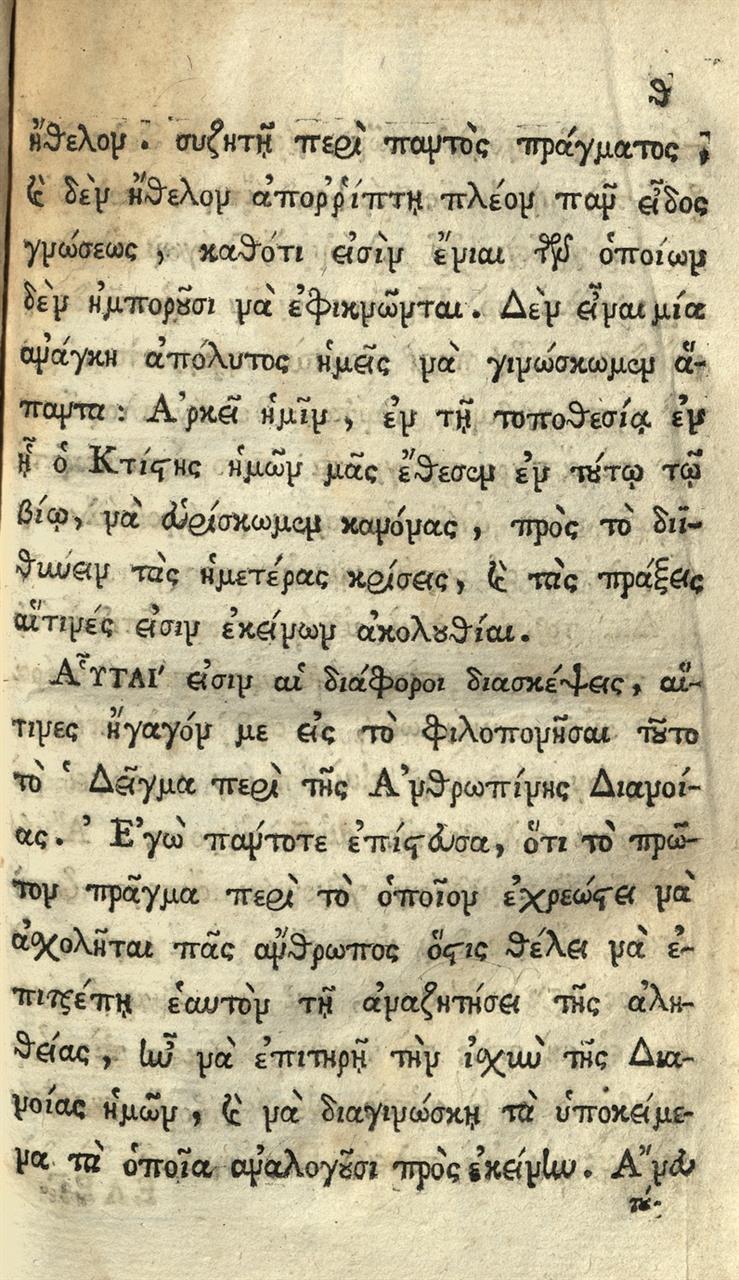 θ
ἤθελον. συζητῇ περὶ παντὸς πράγματος,
ϗ δὲν ἤθελον ἀποῤῥίπτῃ πλέον πᾶν εἶδος
γνώσεως, καθότι εἰσὶν ἔνιαι τῶν ὁποίων
δὲν ἠμποροῦσι νὰ ἐφικνῶνται. Δὲν εἶναι μία
ανάγκη ἀπόλυτος ἡμεῖς νὰ γινώσκωμεν ἅ-
παντα: Ἀρκεῖ ἡμῖν, ἐν τῇ τοποθεσίᾳ ἐν
ᾗ ὁ Κτίστης ἡμῶν μᾶς ἔθεσεν ἐν τούτῳ τῷ
βίῳ, νὰ εὑρίσκωμεν κανόνας, πρὸς τὸ διϊ-
θύνειν τὰς ἡμετέρας κρίσεις, ϗ τὰς πράξεις
αἵτινές εἰσιν ἐκείνων ἀκολουθίαι.
ΑὟΤΑΊ εἰσιν αἱ διάφοροι διασκέψεις, αἵ-
τινες ἤγαγόν με εἰς τὸ φιλοπονῆσαι τοῦτο
τὸ ῾ Δεῖγμα περὶ τῆς Ἀνθρωπίνης Διανοί-
ας. ᾿ Ἐγὼ πάντοτε ἐπίστευσα, ὅτι τὸ πρῶ-
τον πρᾶγμα περὶ τὸ ὁποῖον ἐχρεώστει νὰ
ἀσχολῆται πᾶς ἄνθρωπος ὅστις θέλει νὰ ἐ-
πιτρέπῃ ἑαυτὸν τῇ ἀναζητήσει τῆς ἀλη-
θείας, ἦν νὰ ἐπιτηρῇ τὴν ἰσχὺν τῆς Δια-
νοίας ἡμῶν, ϗ νὰ διαγινώσκῃ τὰ ὑποκείμε-
να τὰ ὁποῖα αναλογοῦσι πρὸς ἐκείνην. Ἄνευ
τού-